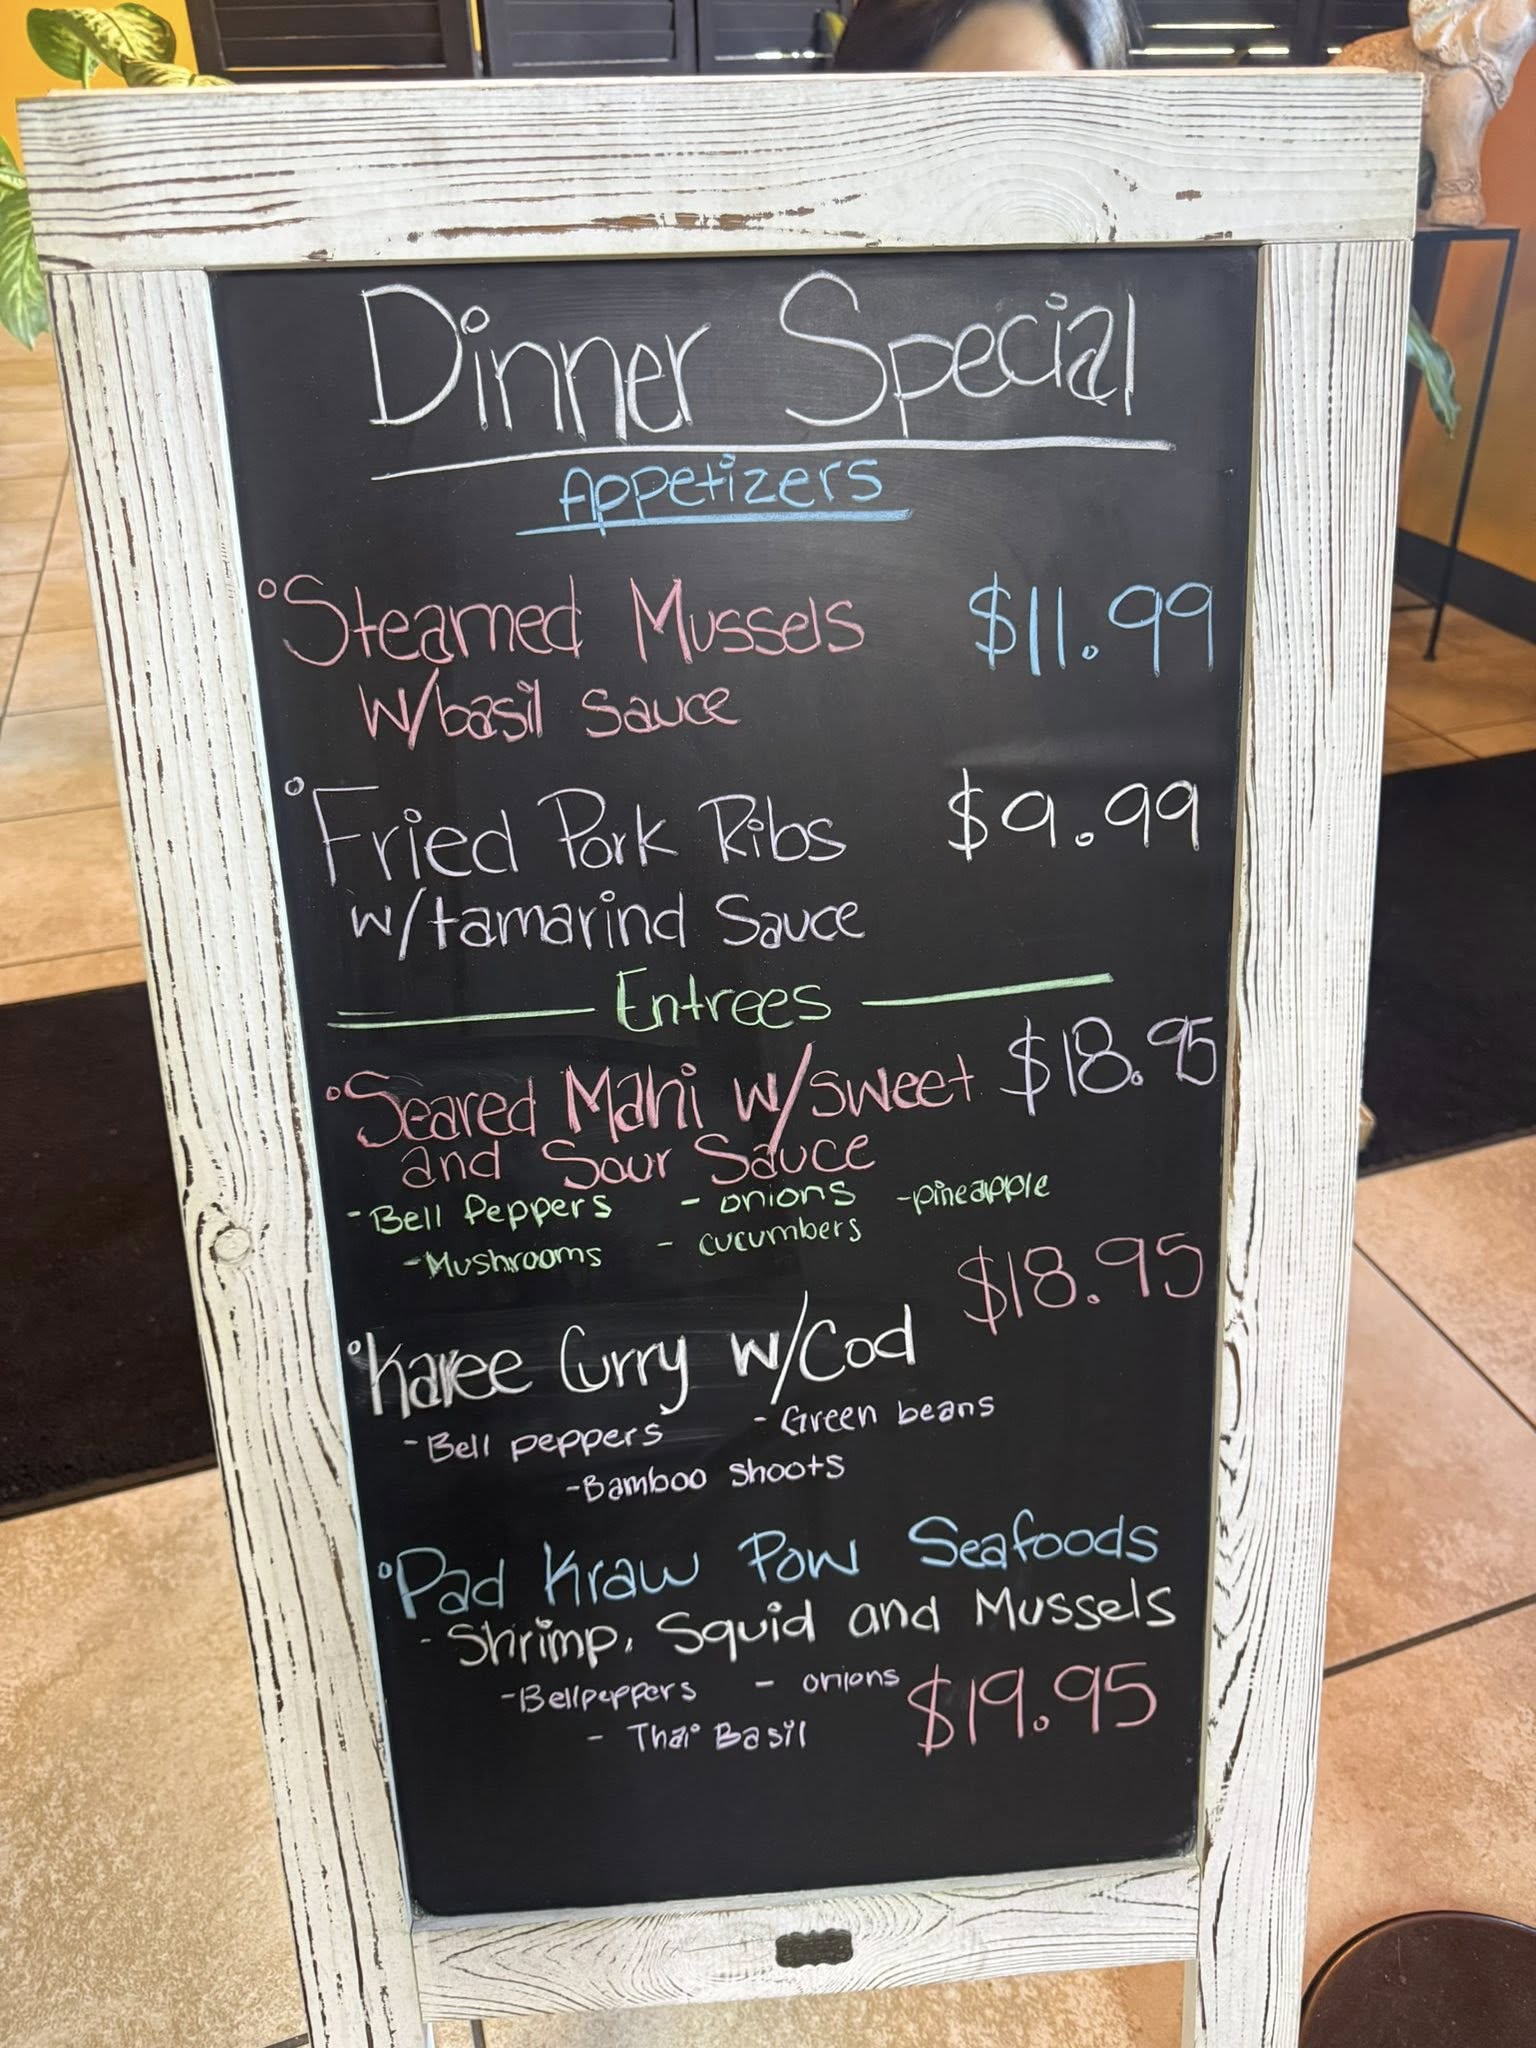 Dinner Special
Appetizers
°Steamed Mussels $11.99
w/basil sauce
°Fried Pork Ribs $9.99
w/tamarind Sauce
Entrees
°Seared Mahi w/sweet $18.95
and Sour Sauce
-Bell Peppers - onions -pineapple
-Mushrooms - cucumbers
$18.95
°Karee Curry w/Cod
-Bell peppers -Green beans
-Bamboo shoots
°Pad Kraw Pow Seafoods
-Shrimp, Squid and Mussels
-Bellpeppers - onions $19.95
- Thai Basil